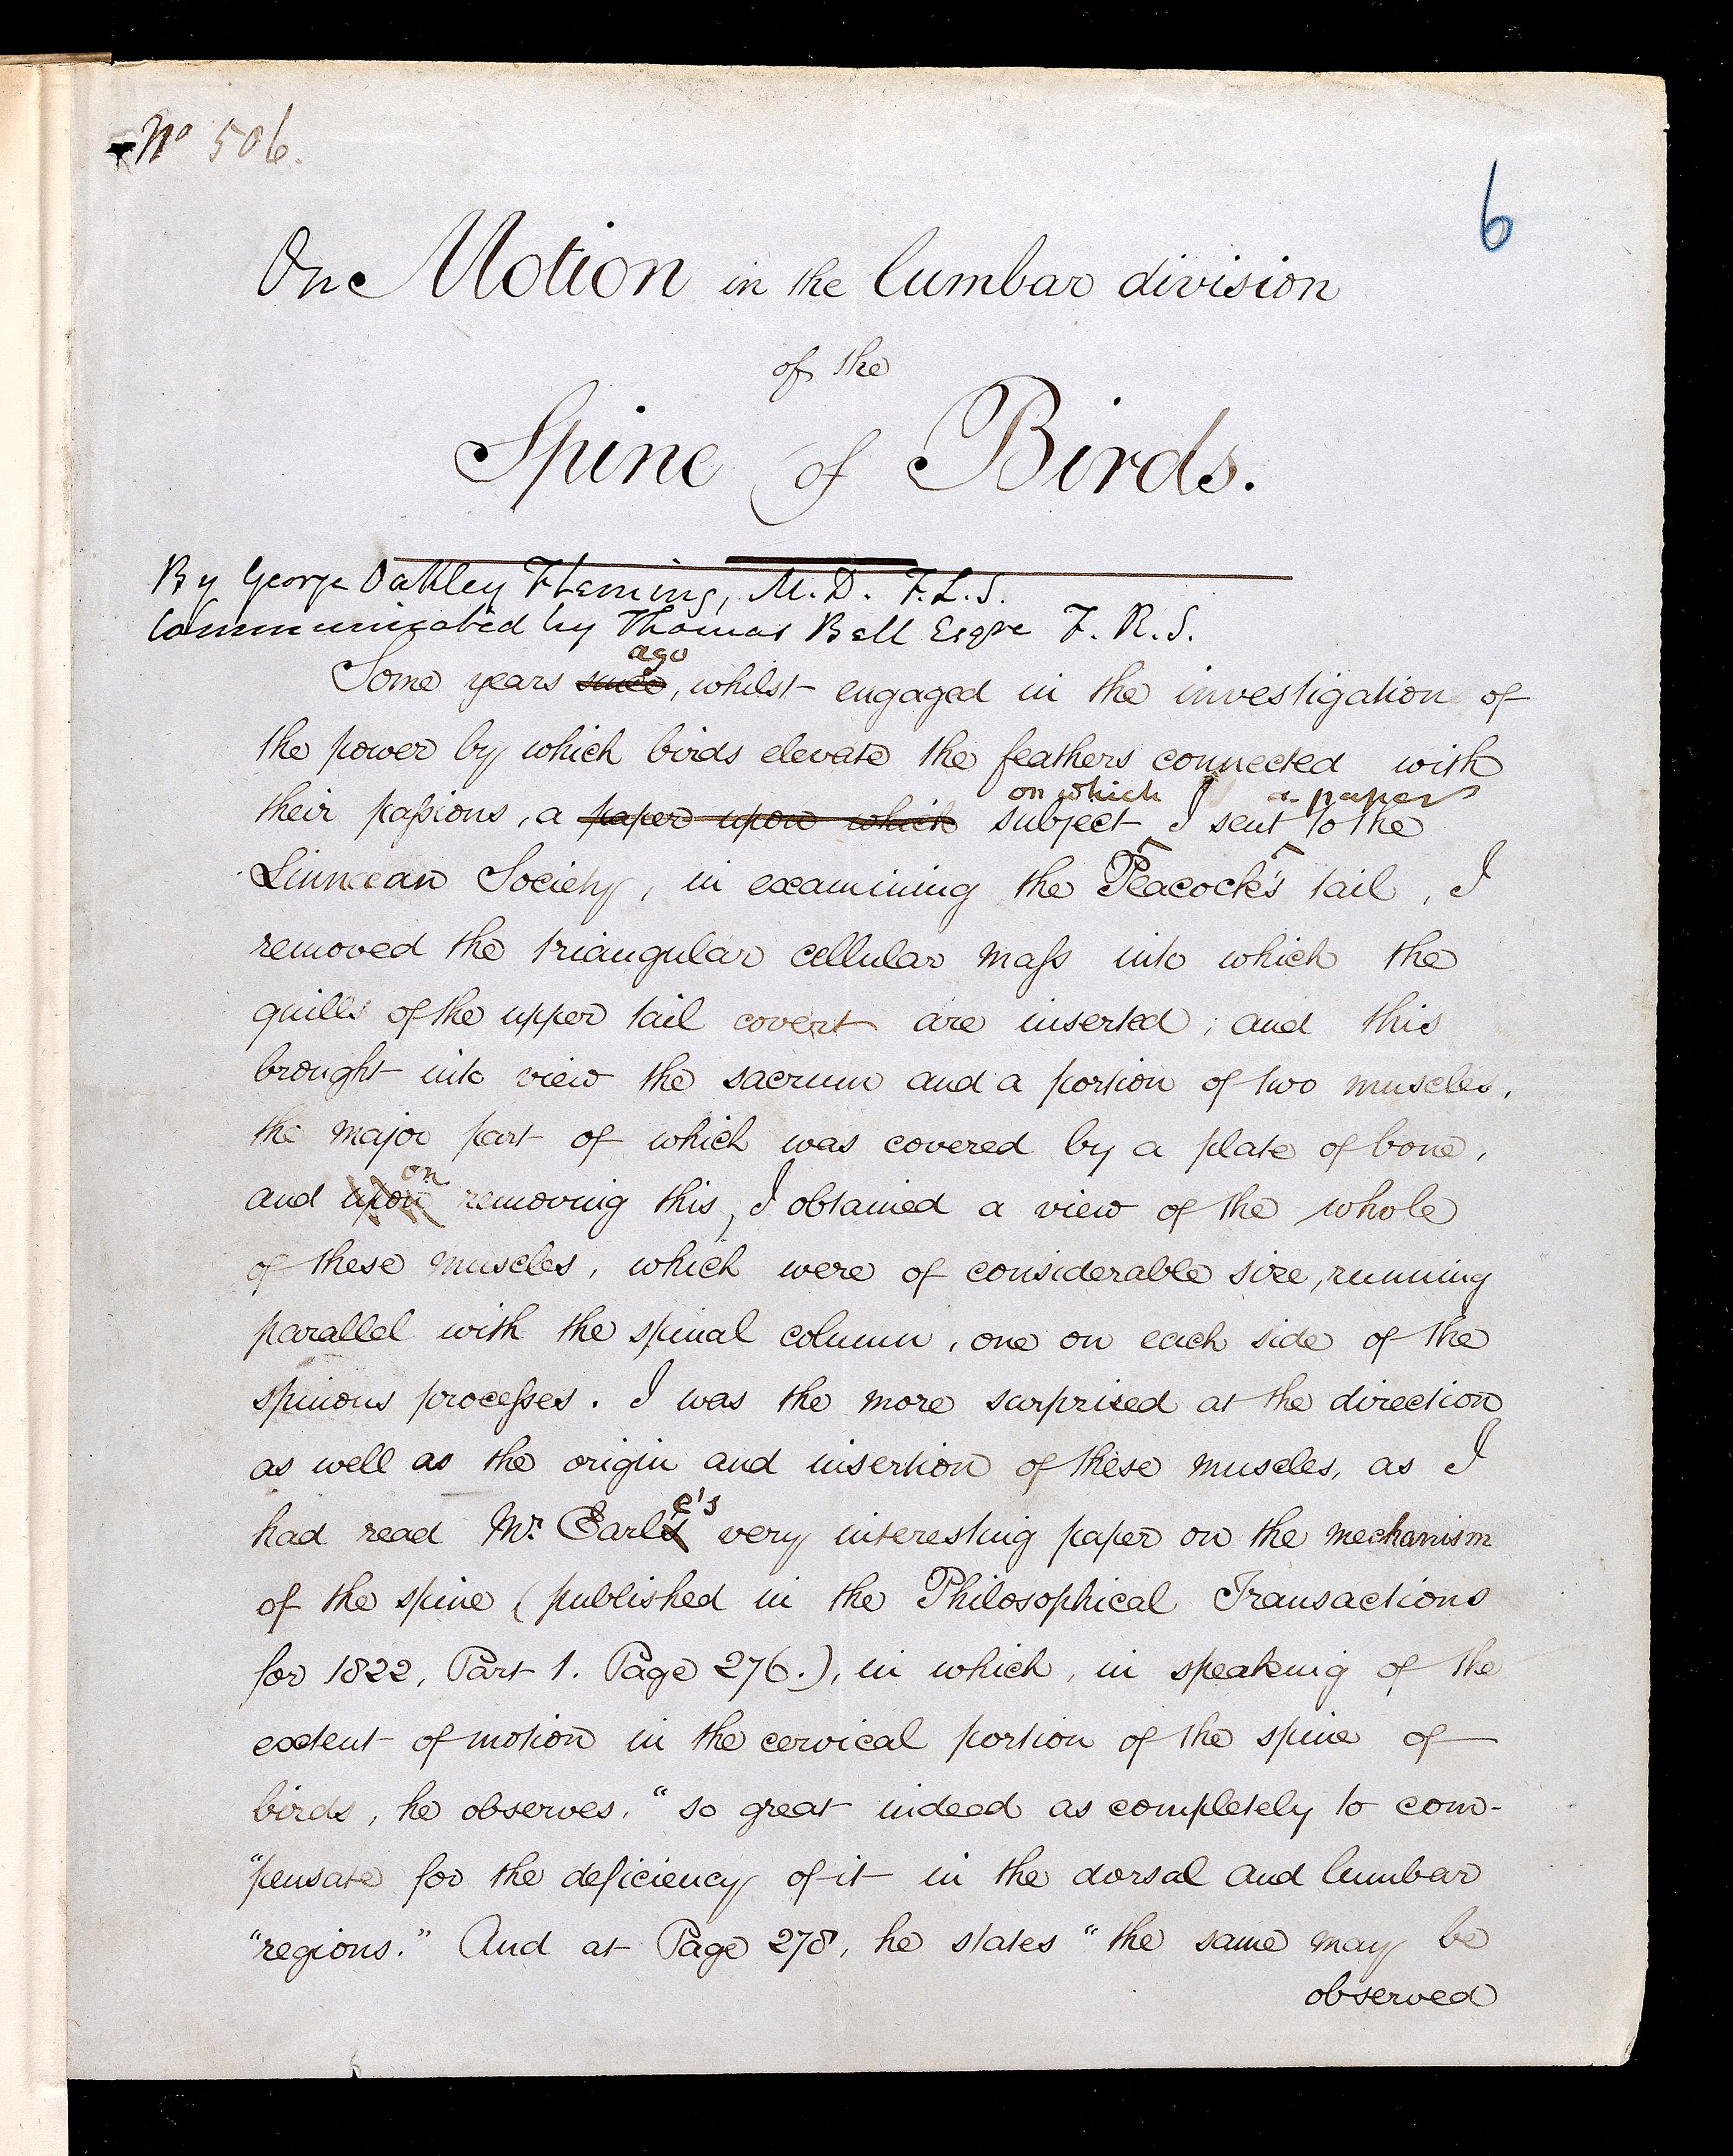 No 506.
6
On Motion in the lumbar division
of the
Spine of Birds.
By George Oakley Fleming, M.D. F.L.S.
Communicated by Thomas Bell Esqre F.R.S.
ago
Some years since, whilst engaged in the investigation of
the power by which birds elevate the feathers connected with
on which a paper
their passions, a paper upon which subject I sent to the
Linnæan Society, in examining the Peacock's tail, I
removed the triangular cellular mass into which the
quills of the upper tail covert are inserted; and this
brought into view the sacrum and a portion of two muscles,
the major part of which was covered by a plate of bone,
on
and upon removing this, I obtained a view of the whole
of these muscles, which were of considerable size, running
parallel with the spinal column, one on each side of the
spinous processes. I was the more surprised at the direction
as well as the origin and insertion of these muscles, as I
e's
had read Mr. Earl's very interesting paper on the mechanism
of the spine (published in the Philosophical Transactions
for 1822, Part 1. Page 276.), in which, in speaking of the
extent of motion in the cervical portion of the spine of
birds, he observes, "so great indeed as completely to com-
"pensate for the deficiency of it in the dorsal and lumbar
"regions." And at Page 278, he states "the same may be
observed